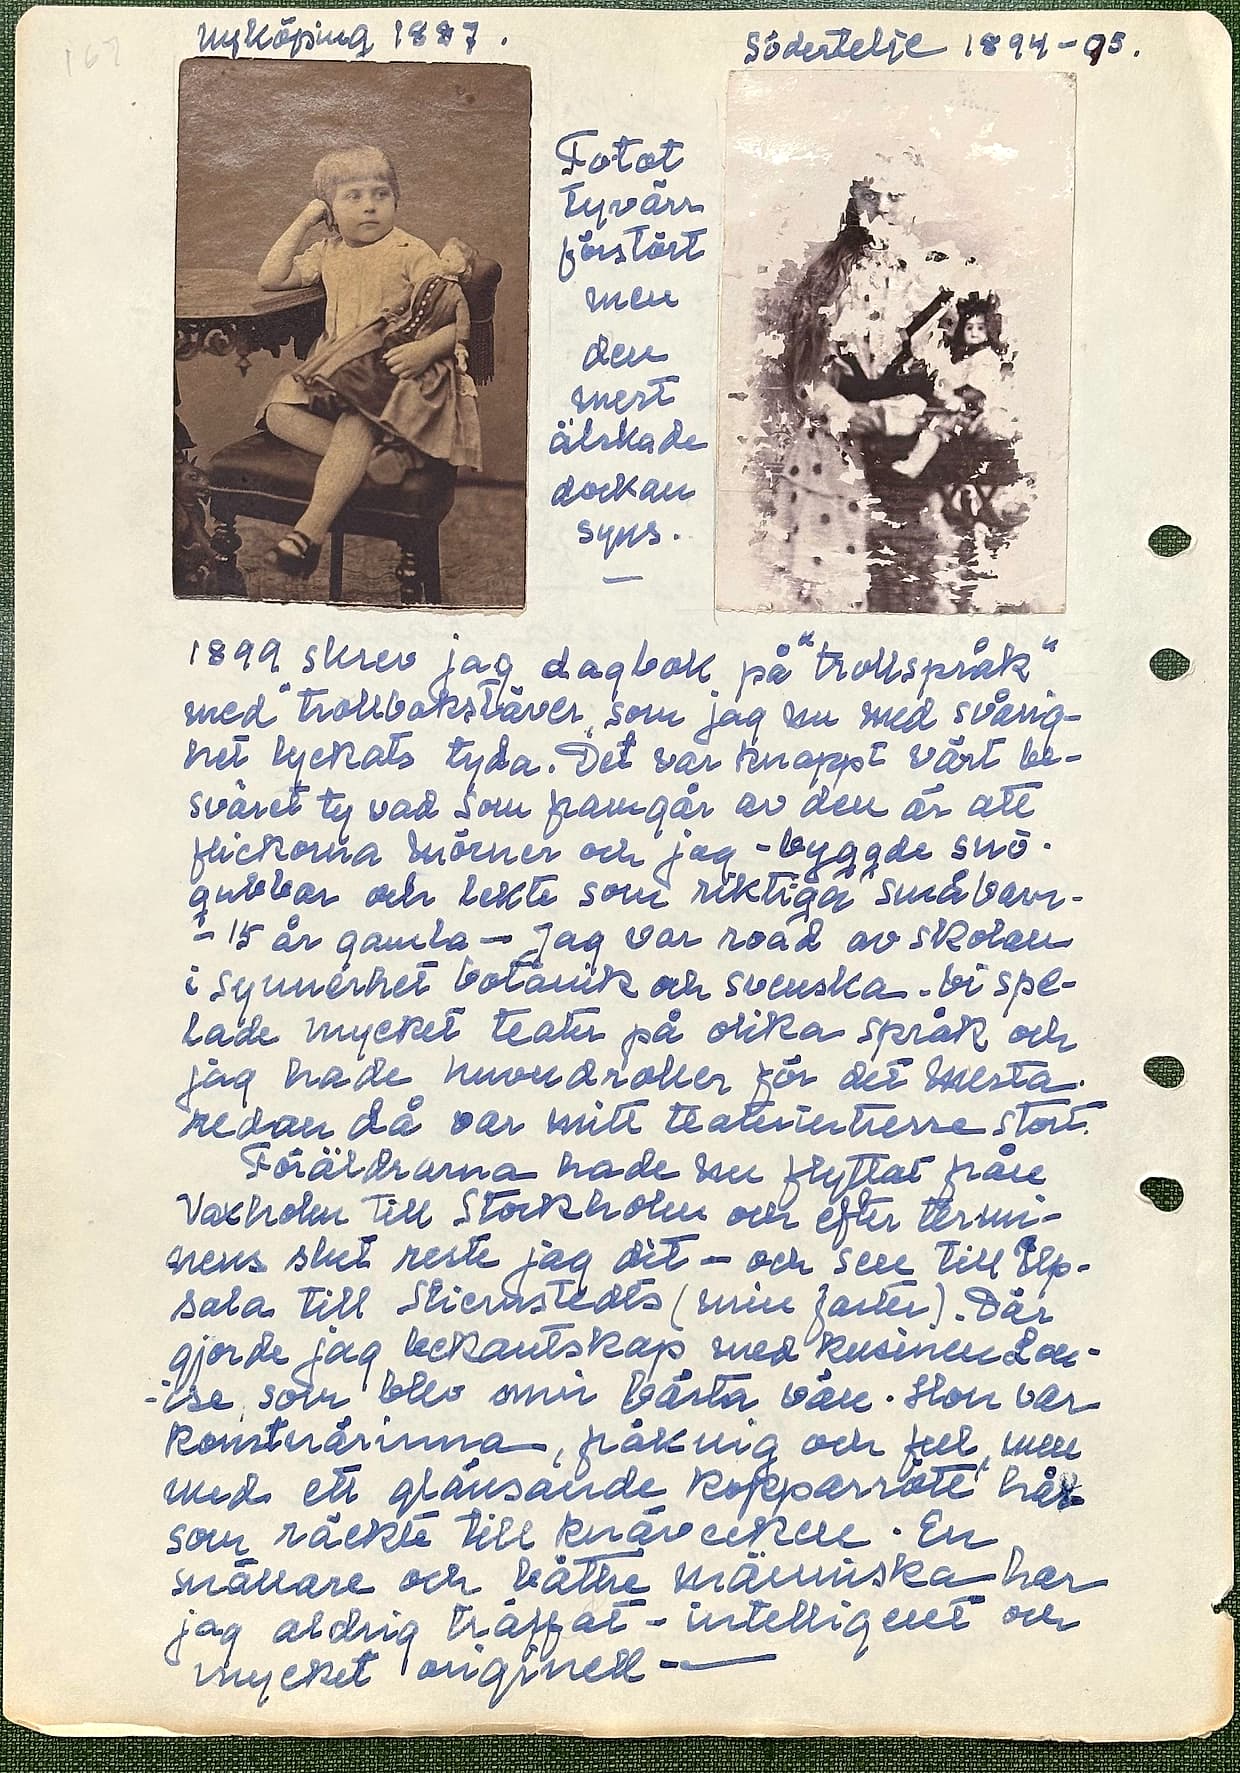 167
Nyköping 1887.
Södertelje 1894-95.
Fotot
tyvärr
förstört
men
den
mest
älskade
dockan
syns.
1899 skrev jag dagbok på "trollspråk"
med "trollbokstäver" som jag nu med svårig-
het lyckats tyda. Det var knappt värt be-
sväret ty vad som framgår av den är att
flickorna Mörner och jag - byggde snö-
gubbar och lekte som riktiga småbarn -
- 15 år gamla - Jag var road av skolan
i synnerhet botanik och svenska. Vi spe-
lade mycket teater på olika språk och
jag hade huvudroller för det mesta.
Redan då var mitt teaterintresse stort.
Föräldrarna hade nu flyttat från
Vaxholm till Stockholm och efter termi-
nens slut reste jag dit - och sen till Up-
sala till Stiernstedts (min faster). Där
gjorde jag bekantskap med kusinen Lou-
-ise, som blev min bästa vän. Hon var
konstnärinna, fräknig och ful, men
med ett glänsande kopparrött hår
som räckte till knävecken. En
snällare och bättre människa har
jag aldrig träffat - intelligent och
mycket originell -